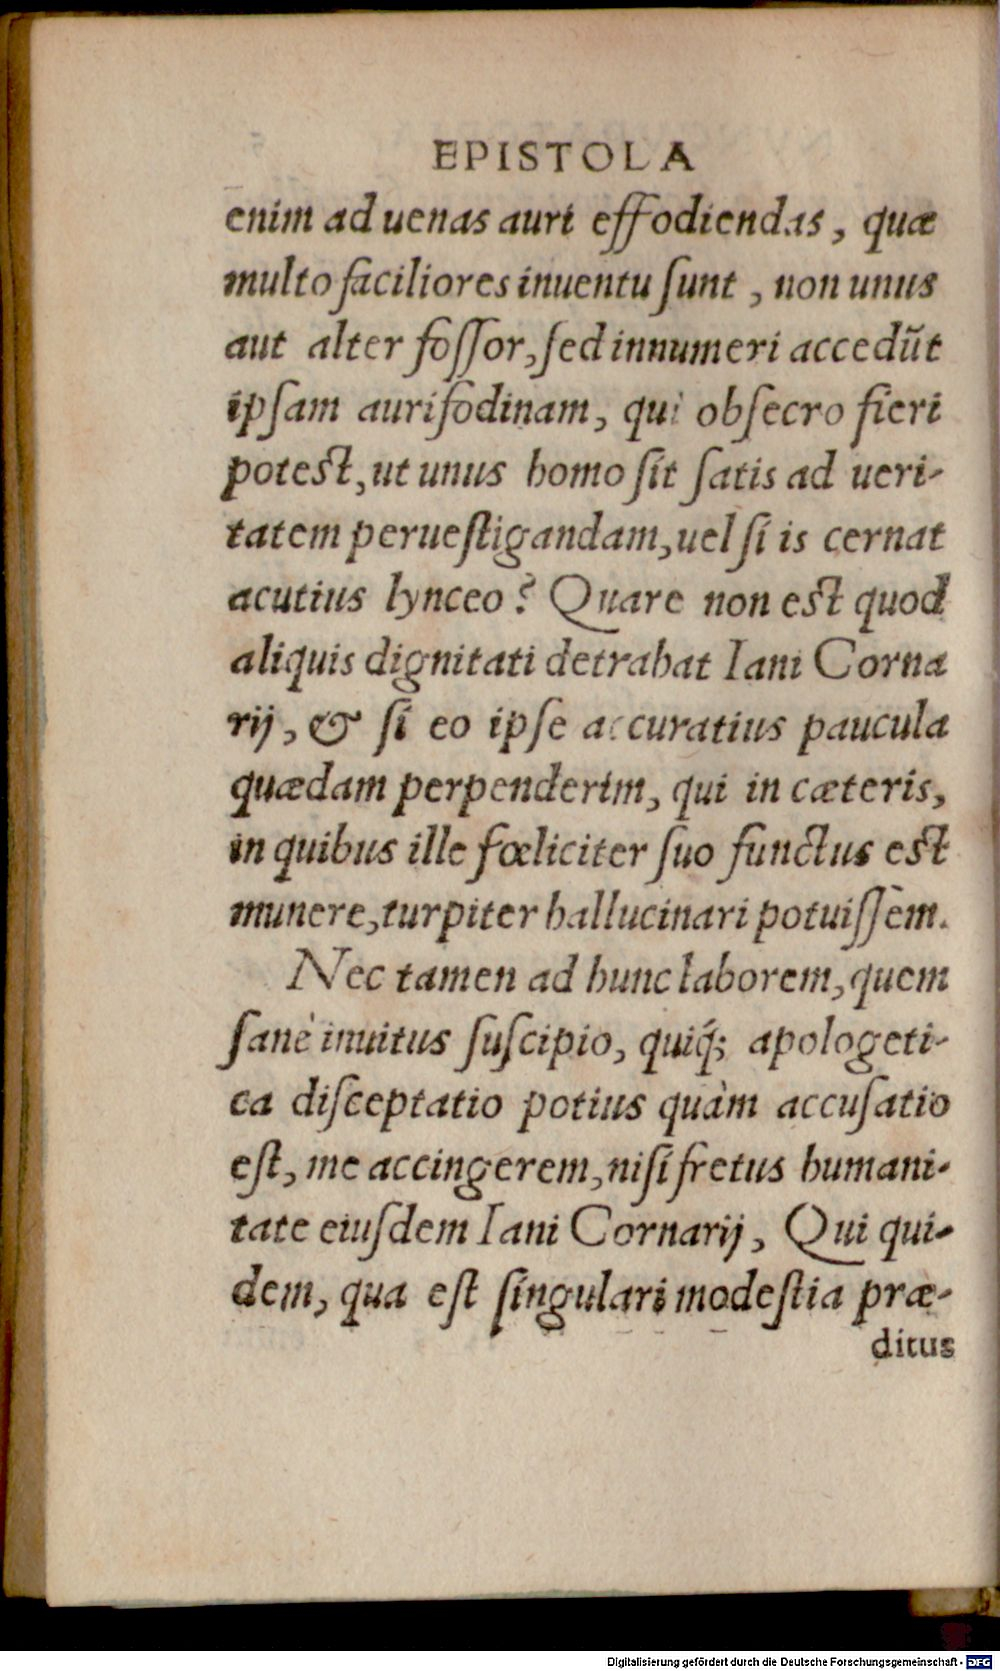 EPISTOLA
enim ad uenas auri effodiendas, quæ
multo faciliores inuentu ſunt, non unus
aut alter foſſor, ſed innumeri accedūt
ipſam aurifodinam, qui obſecro fieri
poteſt, ut unus homo ſit ſatis ad ueri-
tatem perueſtigandam, uel ſi is cernat
acutius lynceo? Quare non eſt quod
aliquis dignitati detrahat Iani Corna
rij, & ſi eo ipſe accuratius paucula
quædam perpenderim, qui in cæteris,
in quibus ille fœliciter ſuo functus eſt
munere, turpiter hallucinari potuiſſem.
Nec tamen ad hunc laborem, quem
ſanè inuitus ſuſcipio, quiq́; apologeti-
ca diſceptatio potius quàm accuſatio
eſt, me accingerem, niſi fretus humani-
tate eiuſdem Iani Cornarij, Qui qui-
dem, qua eſt ſingulari modeſtia præ-
ditus
Digitalisierung gefördert durch die Deutsche Forschungsgemeinschaft - DFG